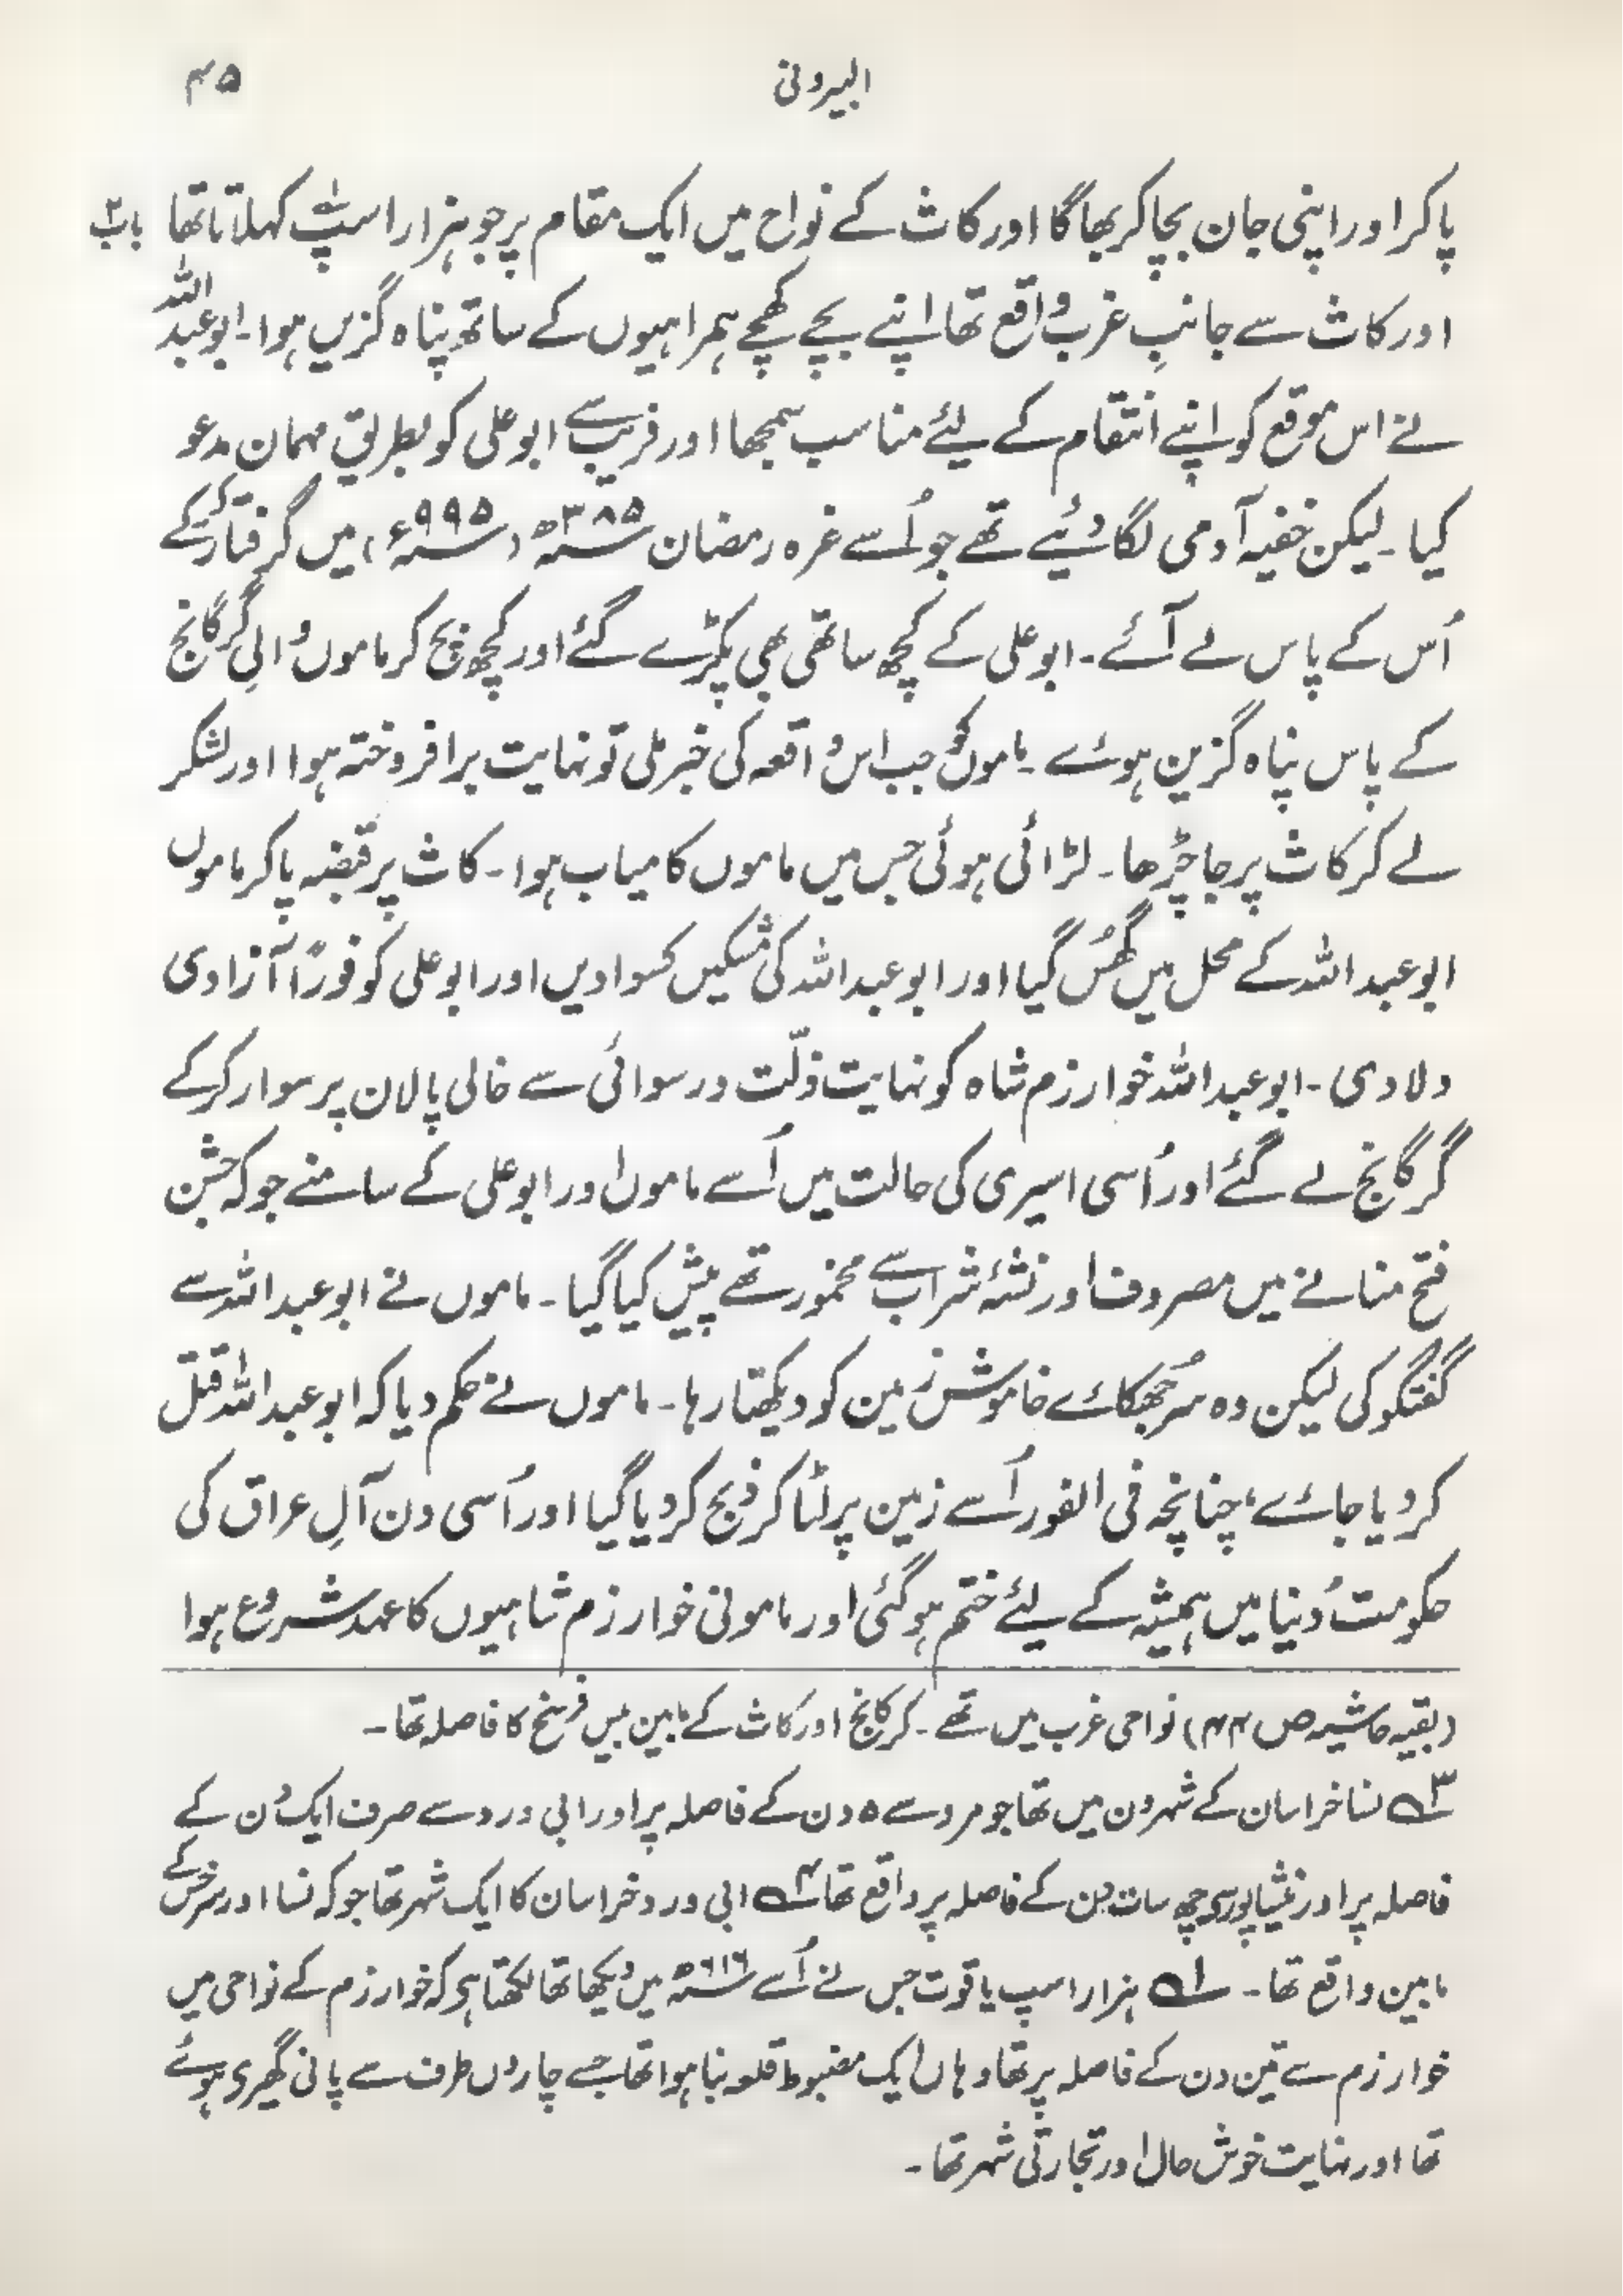 البیرونی ۴۵
پاکر اور اپنی جان بچا کر بھاگا اور کاث کے نواح میں ایک مقام پر جو ہزار اسپ۱ کہلاتا تھا باب۲
اور کاث سے جانبِ غرب واقع تھا اپنے بچے کھچے ہمراہیوں کے ساتھ پناہ گزیں ہوا۔ ابوعبداللہ
نے اس موقع کو اپنے انتقام کے لئے مناسب سمجھا اور فریب سے ابوعلی کو بطریق مہمان مدعو
کیا۔ لیکن خفیہ آدمی لگا دئیے تھے جو اُسے غرہ رمضان ۳۸۵ھ (۹۹۵ء) میں گرفتار کر کے
اُس کے پاس لے آئے۔ ابوعلی کے کچھ ساتھی بھی پکڑے گئے اور کچھ بچ کر ماموں والیِ گرگانج
کے پاس پناہ گزین ہوئے۔ ماموں کو جب اس واقعہ کی خبر ملی تو نہایت برافروختہ ہوا اور لشکر
لے کر کاث پر جا چڑھا۔ لڑائی ہوئی جس میں ماموں کامیاب ہوا۔ کاث پر قبضہ پاکر ماموں
ابوعبداللہ کے محل میں گھُس گیا اور ابوعبداللہ کی مُشکیں کسوا دیں اور ابوعلی کو فوراً آزادی
دلا دی۔ ابوعبداللہ خوارزم شاہ کو نہایت ذلّت ورسوائی سے خالی پالان پر سوار کر کے
گرگانج لے گئے اور اُسی اسیری کی حالت میں اُسے ماموں اور ابوعلی کے سامنے جو کہ جشن
فتح منانے میں مصروف اور نشۂ شراب سے مخمور تھے پیش کیا گیا۔ ماموں نے ابوعبداللہ سے
گفتگو کی لیکن وہ سر جُھکائے خاموش زمین کو دیکھتا رہا۔ ماموں نے حکم دیا کہ ابوعبداللہ قتل
کر دیا جائے، چنانچہ فی الفور اُسے زمین پر لٹا کر ذبح کر دیا گیا اور اُسی دن آلِ عراق کی
حکومت دُنیا میں ہمیشہ کے لئے ختم ہوگئی اور مامونی خوارزم شاہیوں کا عہد شروع ہوا
(بقیہ حاشیہ ص ۴۴) نواحی غرب میں تھے۔ کرکانج اور کاث کے مابین بیس فرسخ کا فاصلہ تھا۔
۳ نسا خراسان کے شہروں میں تھا جو مرو سے ۵ دن کے فاصلہ پر اور ابی ورد سے صرف ایک دن کے
فاصلہ پر اور نیشاپور سے چھ سات دن کے فاصلہ پر واقع تھا ۴ ابی ورد خراسان کا ایک شہر تھا جو کہ نسا اور سرخس کے
مابین واقع تھا۔ ۱ ہزار اسپ یاقوت جس نے اُسے ۶۱۶ھ میں دیکھا تھا لکھتا ہے کہ خوارزم کے نواحی میں
خوارزم سے تین دن کے فاصلہ پر تھا وہاں ایک مضبوط قلعہ بنا ہوا تھا جسے چاروں طرف سے پانی گھیرے ہوئے
تھا اور نہایت خوش حال اور تجارتی شہر تھا۔